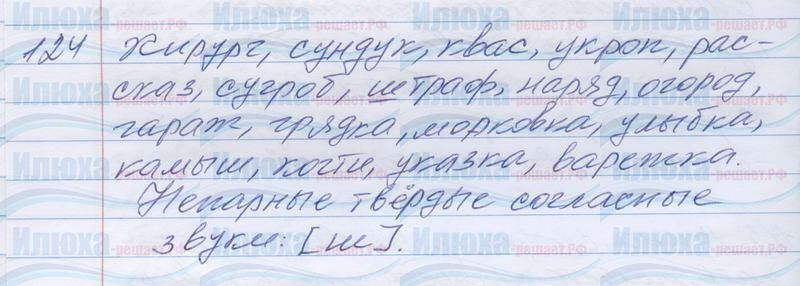 124 Хирург, сундук, квас, укроп, рас-
сказ, сугроб, штраф, наряд, огород,
гараж, грядка, морковка, улыбка,
камыш, когти, указка, варежка.
Непарные твёрдые согласные
звуки: [ш].